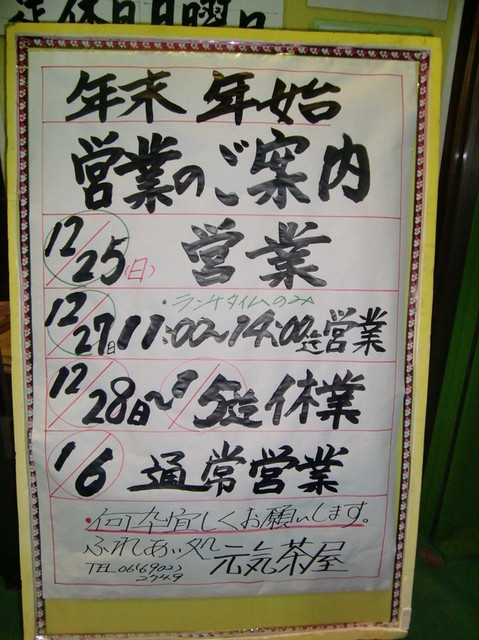 定休日日曜日
年末年始
営業のご案内
12/25(日) 営業
・ランチタイムのみ
12/27日 11:00〜14:00迄営業
12/28日〜1/5迄休業
1/6 通常営業
・何卒宜しくお願いします。
ふれあい処 元気茶屋
TEL 06(6902)
2749